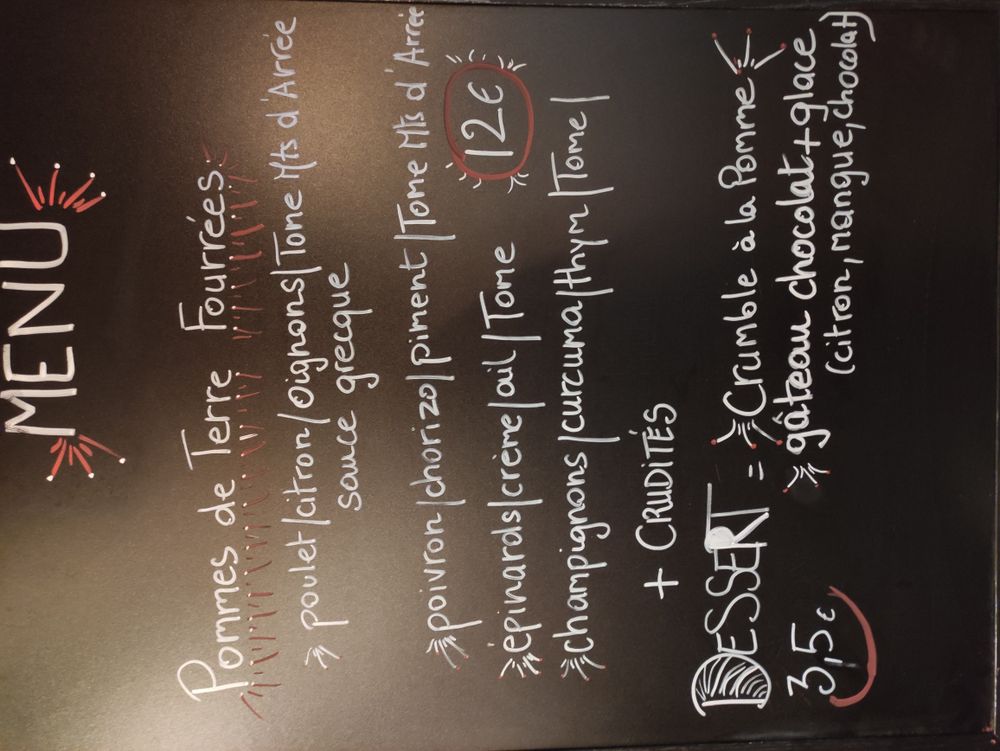 MENU
Pommes de Terre Fourrées:
poulet/citron/oignons/Tome Mts d'Arrée
sauce grecque
poivron/chorizo/piment/Tome Mts d'Arrée
épinards/crème/ail/Tome 12€
champignons/curcuma/thym/Tome/
+ CRUDITÉS
DESSERT = Crumble à la Pomme
3,5€ gâteau chocolat + glace
(citron, mangue, chocolat)